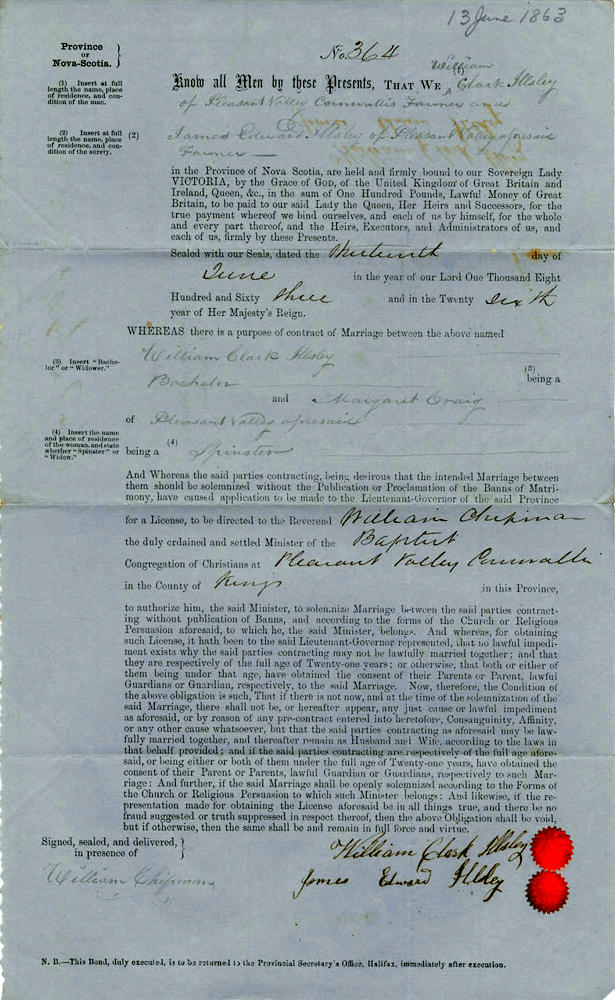 13 June 1863
Province
OF
Nova-Scotia.
No. 364
(1) Insert at full
length the name, place
of residence, and con-
dition of the man.
William
Know all Men by these Presents, THAT WE (1) Clark Illsley
of Pleasant Valley Cornwallis Farmer and
(2) Insert at full
length name, place
of residence, and con-
dition of the surety.
(2) James Edward Illsley of Pleasant Valley aforesaid
Farmer
in the Province of Nova Scotia, are held and firmly bound to our Sovereign Lady
VICTORIA, by the Grace of GOD, of the United Kingdom of Great Britain and
Ireland, Queen, &c., in the sum of One Hundred Pounds, Lawful Money of Great
Britain, to be paid to our said Lady the Queen, Her Heirs and Successors, for the
true payment whereof we bind ourselves, and each of us by himself, for the whole
and every part thereof, and the Heirs, Executors, and Administrators of us, and
each of us, firmly by these Presents.
Sealed with our Seals, dated the day of
June in the year of our Lord One Thousand Eight
Hundred and Sixty three and in the Twenty sixth
year of Her Majesty's Reign.
WHEREAS there is a purpose of contract of Marriage between the above named
William Clark Illsley
(3) Insert "Bache-
lor" or "Widower."
Bachelor (3) being a
and Margaret Craig
of Pleasant Valley aforesaid
(4) Insert the name
and place of residence
of the woman, and state
whether "Spinster" or
"Widow."
being a (4) Spinster
And Whereas the said parties contracting, being desirous that the intended Marriage between
them should be solemnized without the Publication or Proclamation of the Banns of Matri-
mony, have caused application to be made to the Lieutenant-Governor of the said Province
for a License, to be directed to the Reverend William Chipman
the duly ordained and settled Minister of the Baptist
Congregation of Christians at Pleasant Valley Cornwallis
in the County of Kings in this Province,
to authorize him, the said Minister, to solemnize Marriage between the said parties contract-
ing without publication of Banns, and according to the forms of the Church or Religious
Persuasion aforesaid, to which he, the said Minister, belongs. And whereas, for obtaining
such License, it hath been to the said Lieutenant-Governor represented, that no lawful impedi-
ment exists why the said parties contracting may not be lawfully married together; and that
they are respectively of the full age of Twenty-one years; or otherwise, that both or either of
them being under that age, have obtained the consent of their Parents or Parent, lawful
Guardians or Guardian, respectively, to the said Marriage. Now, therefore, the Condition of
the above obligation is such, That if there is not now, and at the time of the solemnization of the
said Marriage, there shall not be, or hereafter appear, any just cause or lawful impediment
as aforesaid, or by reason of any pre-contract entered into heretofore, Consanguinity, Affinity,
or any other cause whatsoever, but that the said parties contracting as aforesaid may be law-
fully married together, and thereafter remain as Husband and Wife, according to the laws in
that behalf provided; and if the said parties contracting are respectively of the full age afore-
said, or being either or both of them under the full age of Twenty-one years, have obtained the
consent of their Parent or Parents, lawful Guardian or Guardians, respectively to such Mar-
riage: And further, if the said Marriage shall be openly solemnized according to the Forms of
the Church or Religious Persuasion to which such Minister belongs: And likewise, if the re-
presentation made for obtaining the License aforesaid be in all things true, and there be no
fraud suggested or truth suppressed in respect thereof, then the above Obligation shall be void,
but if otherwise, then the same shall be and remain in full force and virtue.
Signed, sealed, and delivered,
in presence of
William Clark Illsley
William Chipman
James Edward Illsley
N. B.—This Bond, duly executed, is to be returned to the Provincial Secretary's Office, Halifax, immediately after execution.